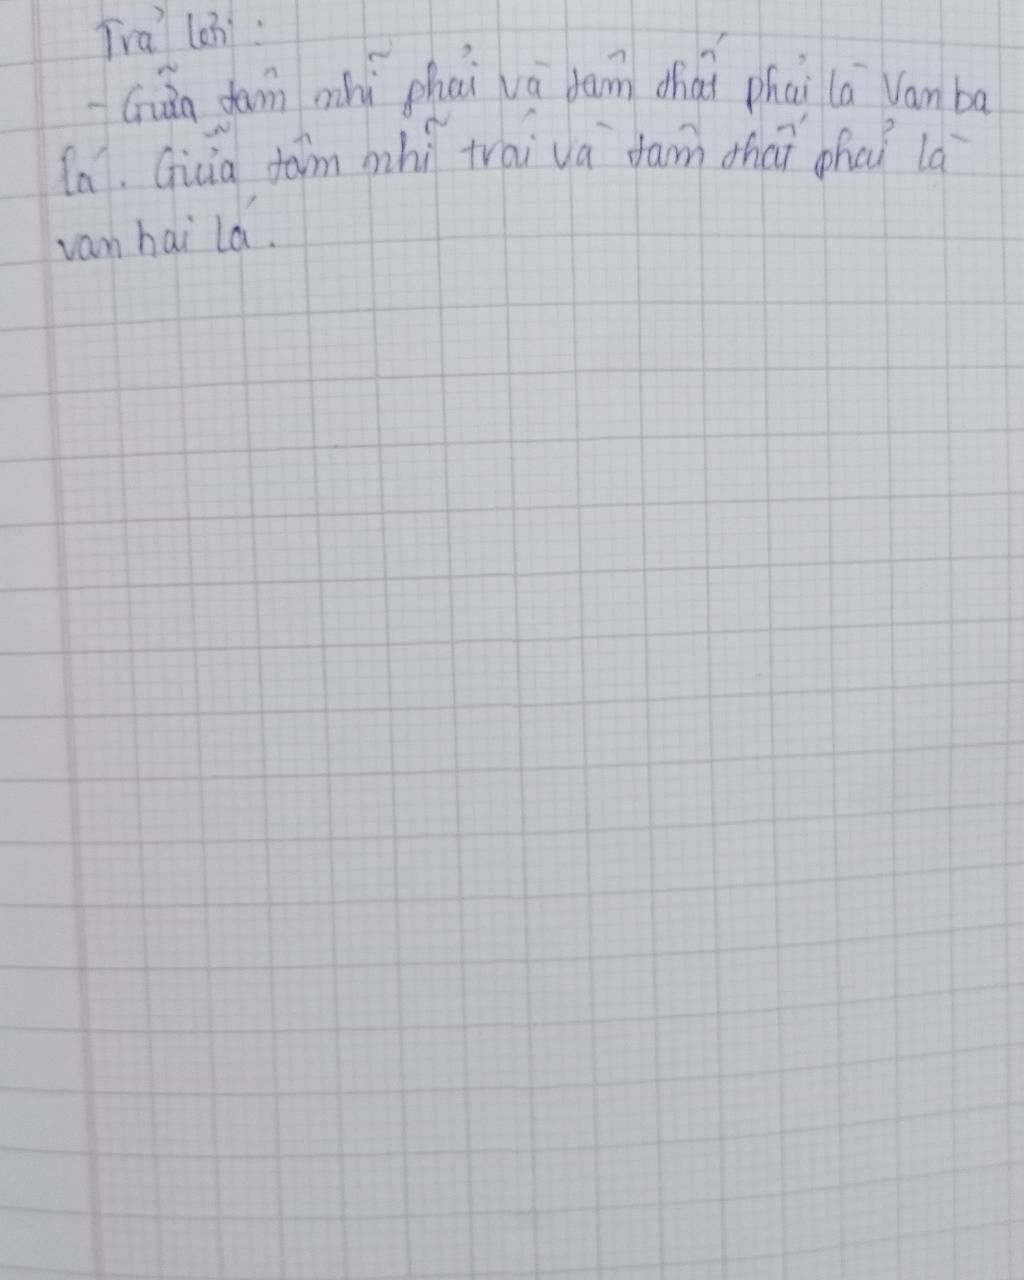 Trả lời:
- Giữa tâm nhĩ phải và tâm thất phải là Van ba
lá. Giữa tâm nhĩ trái và tâm thất phải là
van hai lá.